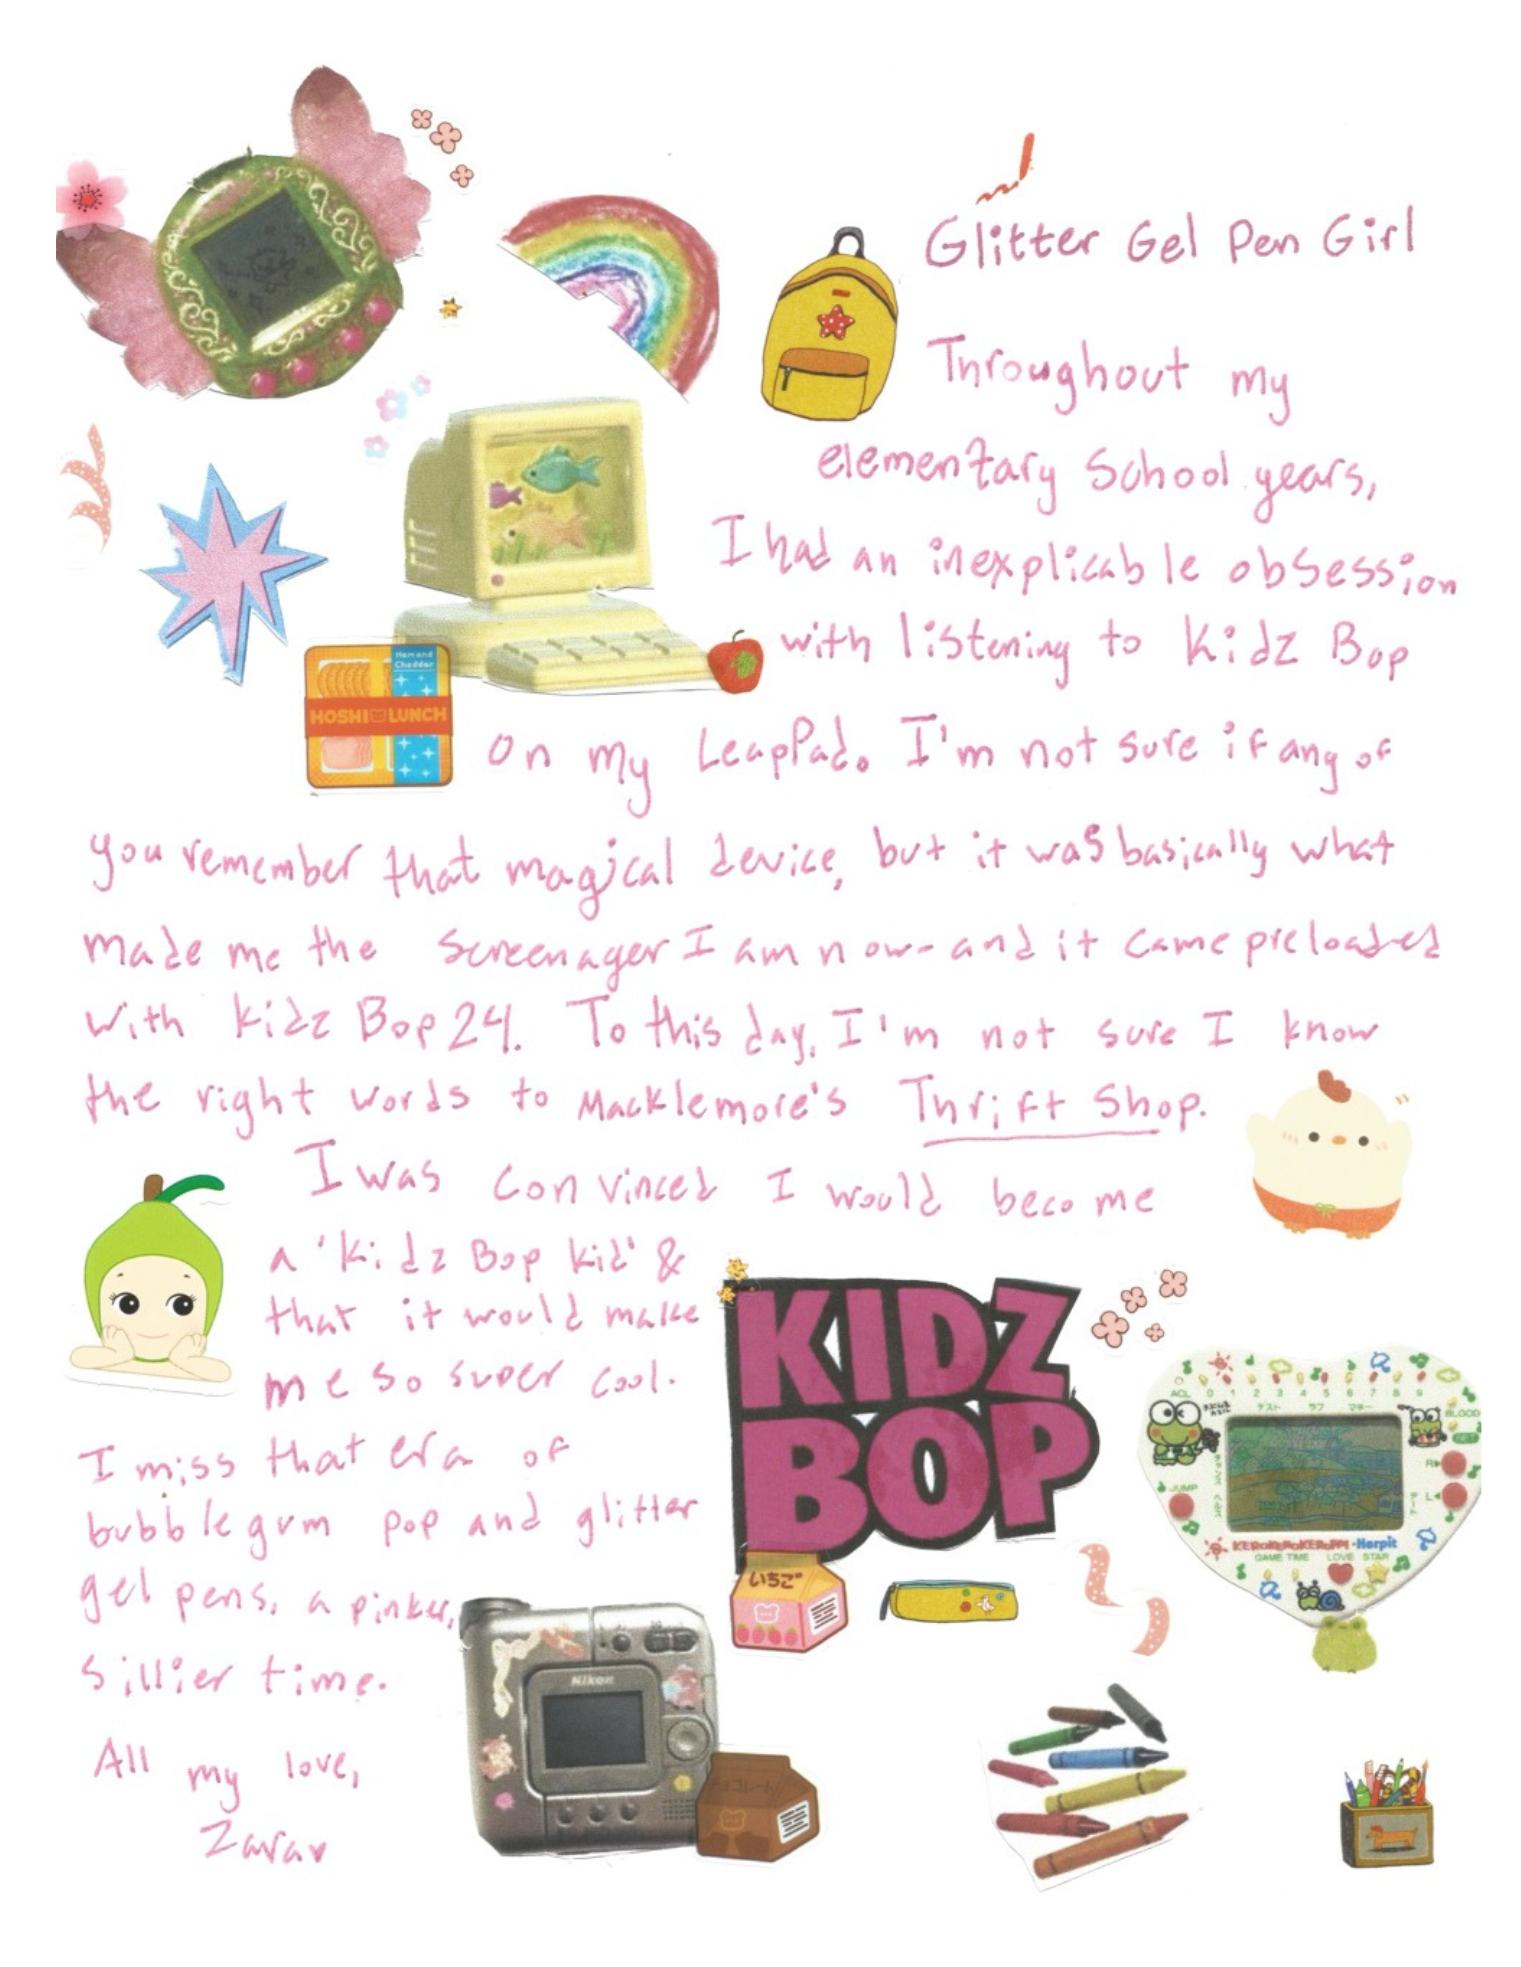 Glitter Gel Pen Girl
Throughout my
elementary School years,
I had an inexplicable obsession
with listening to Kidz Bop
on my LeapPad. I'm not sure if any of
you remember that magical device, but it was basically what
made me the screenager I am now- and it came preloaded
with Kidz Bop 24. To this day, I'm not sure I know
the right words to Macklemore's Thrift Shop.
I was convinced I would become
a 'Kidz Bop kid' &
that it would make
me so super cool.
I miss that era of
bubblegum pop and glitter
gel pens, a pinker,
sillier time.
All my love,
Zara
Ham and
Cheddar
HOSHI LUNCH
KIDZ
BOP
ACL 0 1 2 3 4 5 6 7 8 9
テスト ラブ マネー
BLOOD
SET
R
L
JUMP
チャンス ヘルス
デート
KEROKEROKEROPPI-Herpit
GAME TIME LOVE STAR
いちご
Nikon
チョコレート